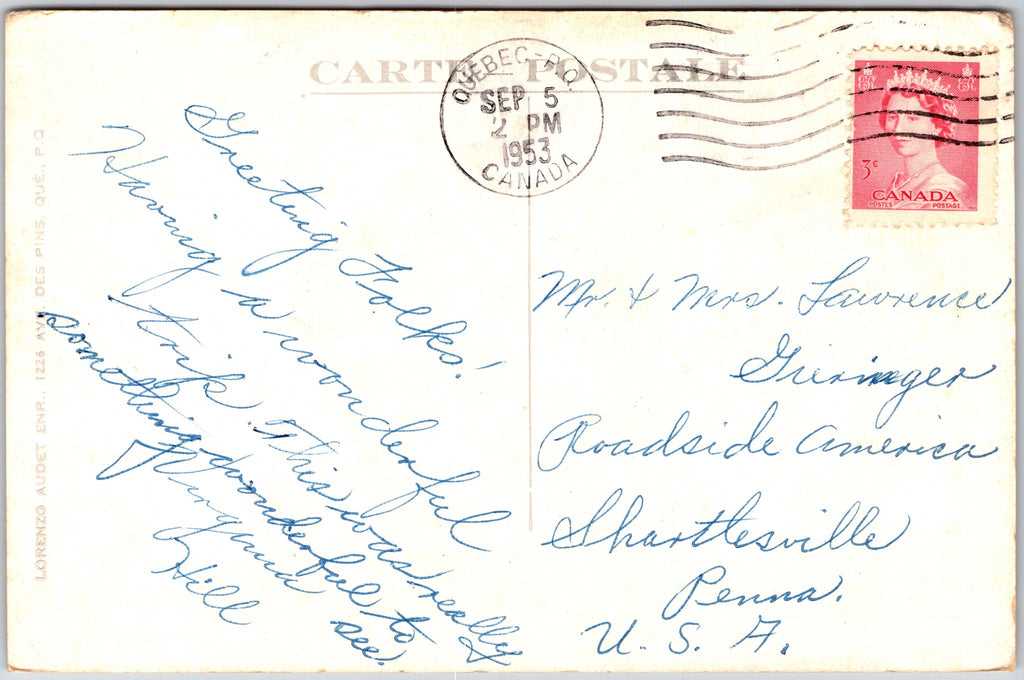 CARTE POSTALE
QUÉBEC-P.Q.
SEP 5
2 PM
1953
CANADA
3¢
CANADA
POSTES POSTAGE
LORENZO AUDET ENR., 1226 AVE. DES PINS, QUE., P.Q.
Greeting Folks!
Having a wonderful
trip. This was really
something wonderful to
see.
Virginia
Hill
Mr. & Mrs. Lawrence
Gieringer
Roadside America
Shartlesville
Penna.
U. S. A.